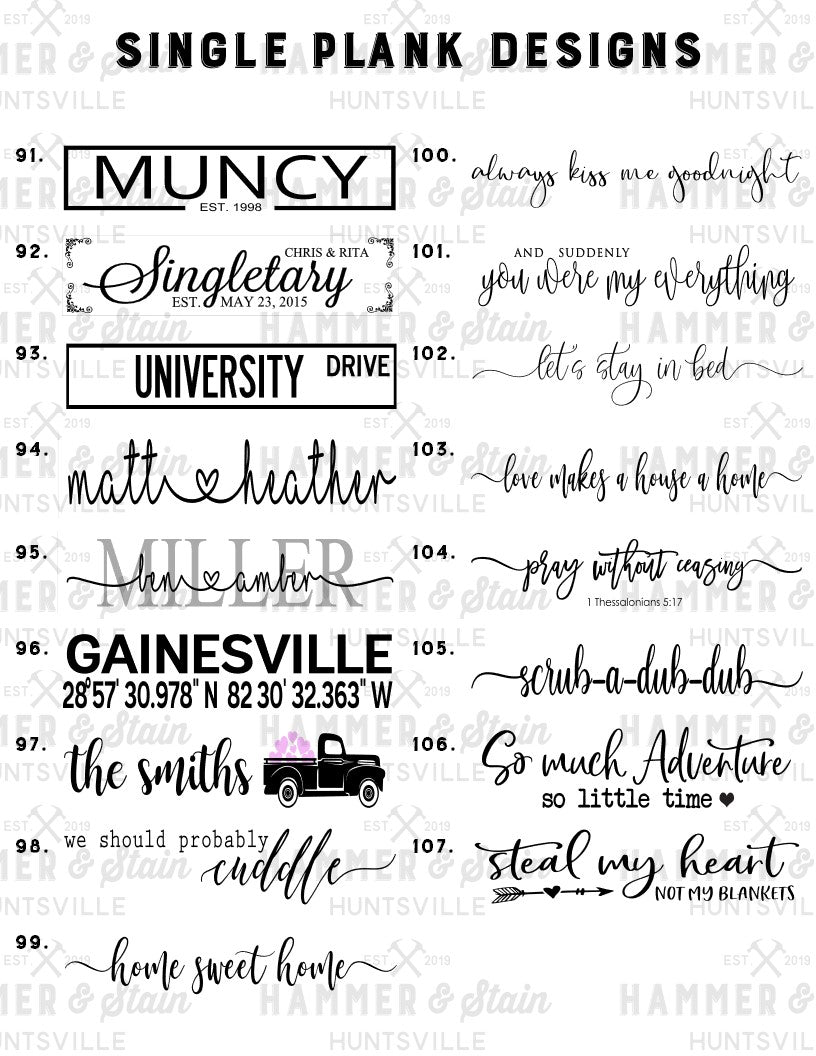 SINGLE PLANK DESIGNS
91.
MUNCY
EST. 1998
92.
CHRIS & RITA
Singletary
EST. MAY 23, 2015
93.
UNIVERSITY DRIVE
94.
matt heather
95.
MILLER
ben amber
96.
GAINESVILLE
28°57' 30.978" N 82 30' 32.363" W
97.
the smiths
98.
we should probably
cuddle
99.
home sweet home
100.
always kiss me goodnight
101.
AND SUDDENLY
you were my everything
102.
let's stay in bed
103.
love makes a house a home
104.
pray without ceasing
1 Thessalonians 5:17
105.
scrub-a-dub-dub
106.
So much Adventure
so little time
107.
steal my heart
NOT MY BLANKETS
EST. 2019
HAMMER & Stain
HUNTSVILLE